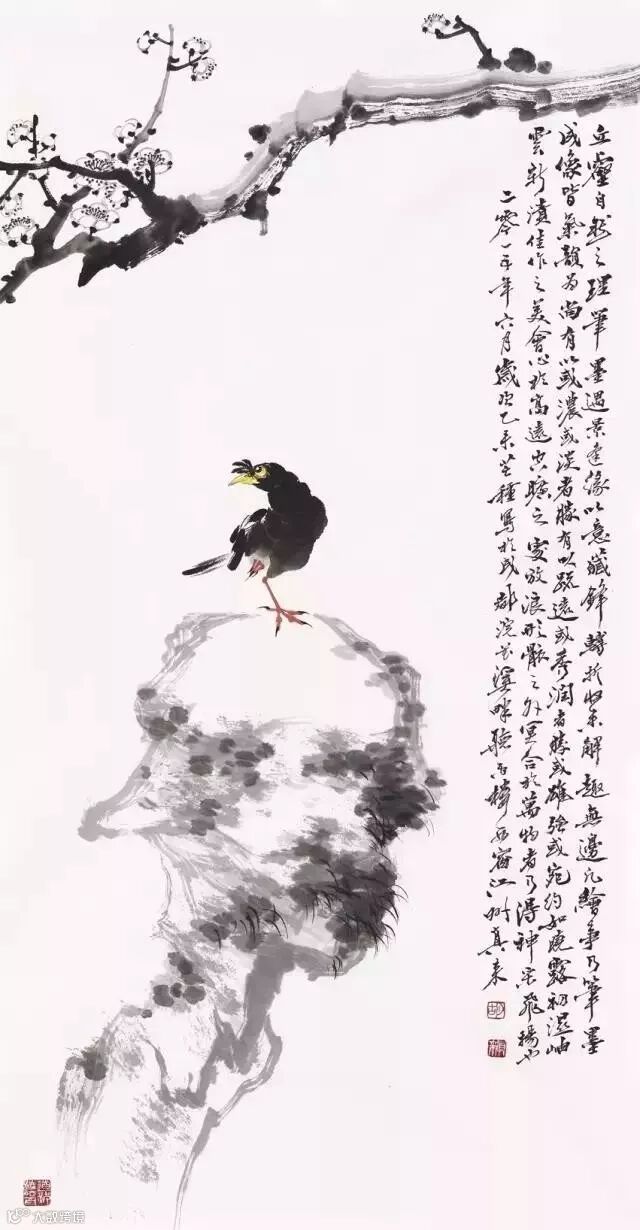 丘壑自然之理筆墨遇景逢緣以意藏鋒轉折收束解趣無邊凡繪事乃筆墨
成像皆氣韻為尚有以或濃或淡者勝有以疏遠或秀潤者勝或雄強或宛約如曉露初濕岫
雲新漬佳作之美會心於高遠空曠之處放浪形骸之外冥合於萬物者乃得神采飛揚也
二零一五年六月歲次乙未芒種寫於成都浣花溪畔聽香樓西窗江州真來
大数跨境